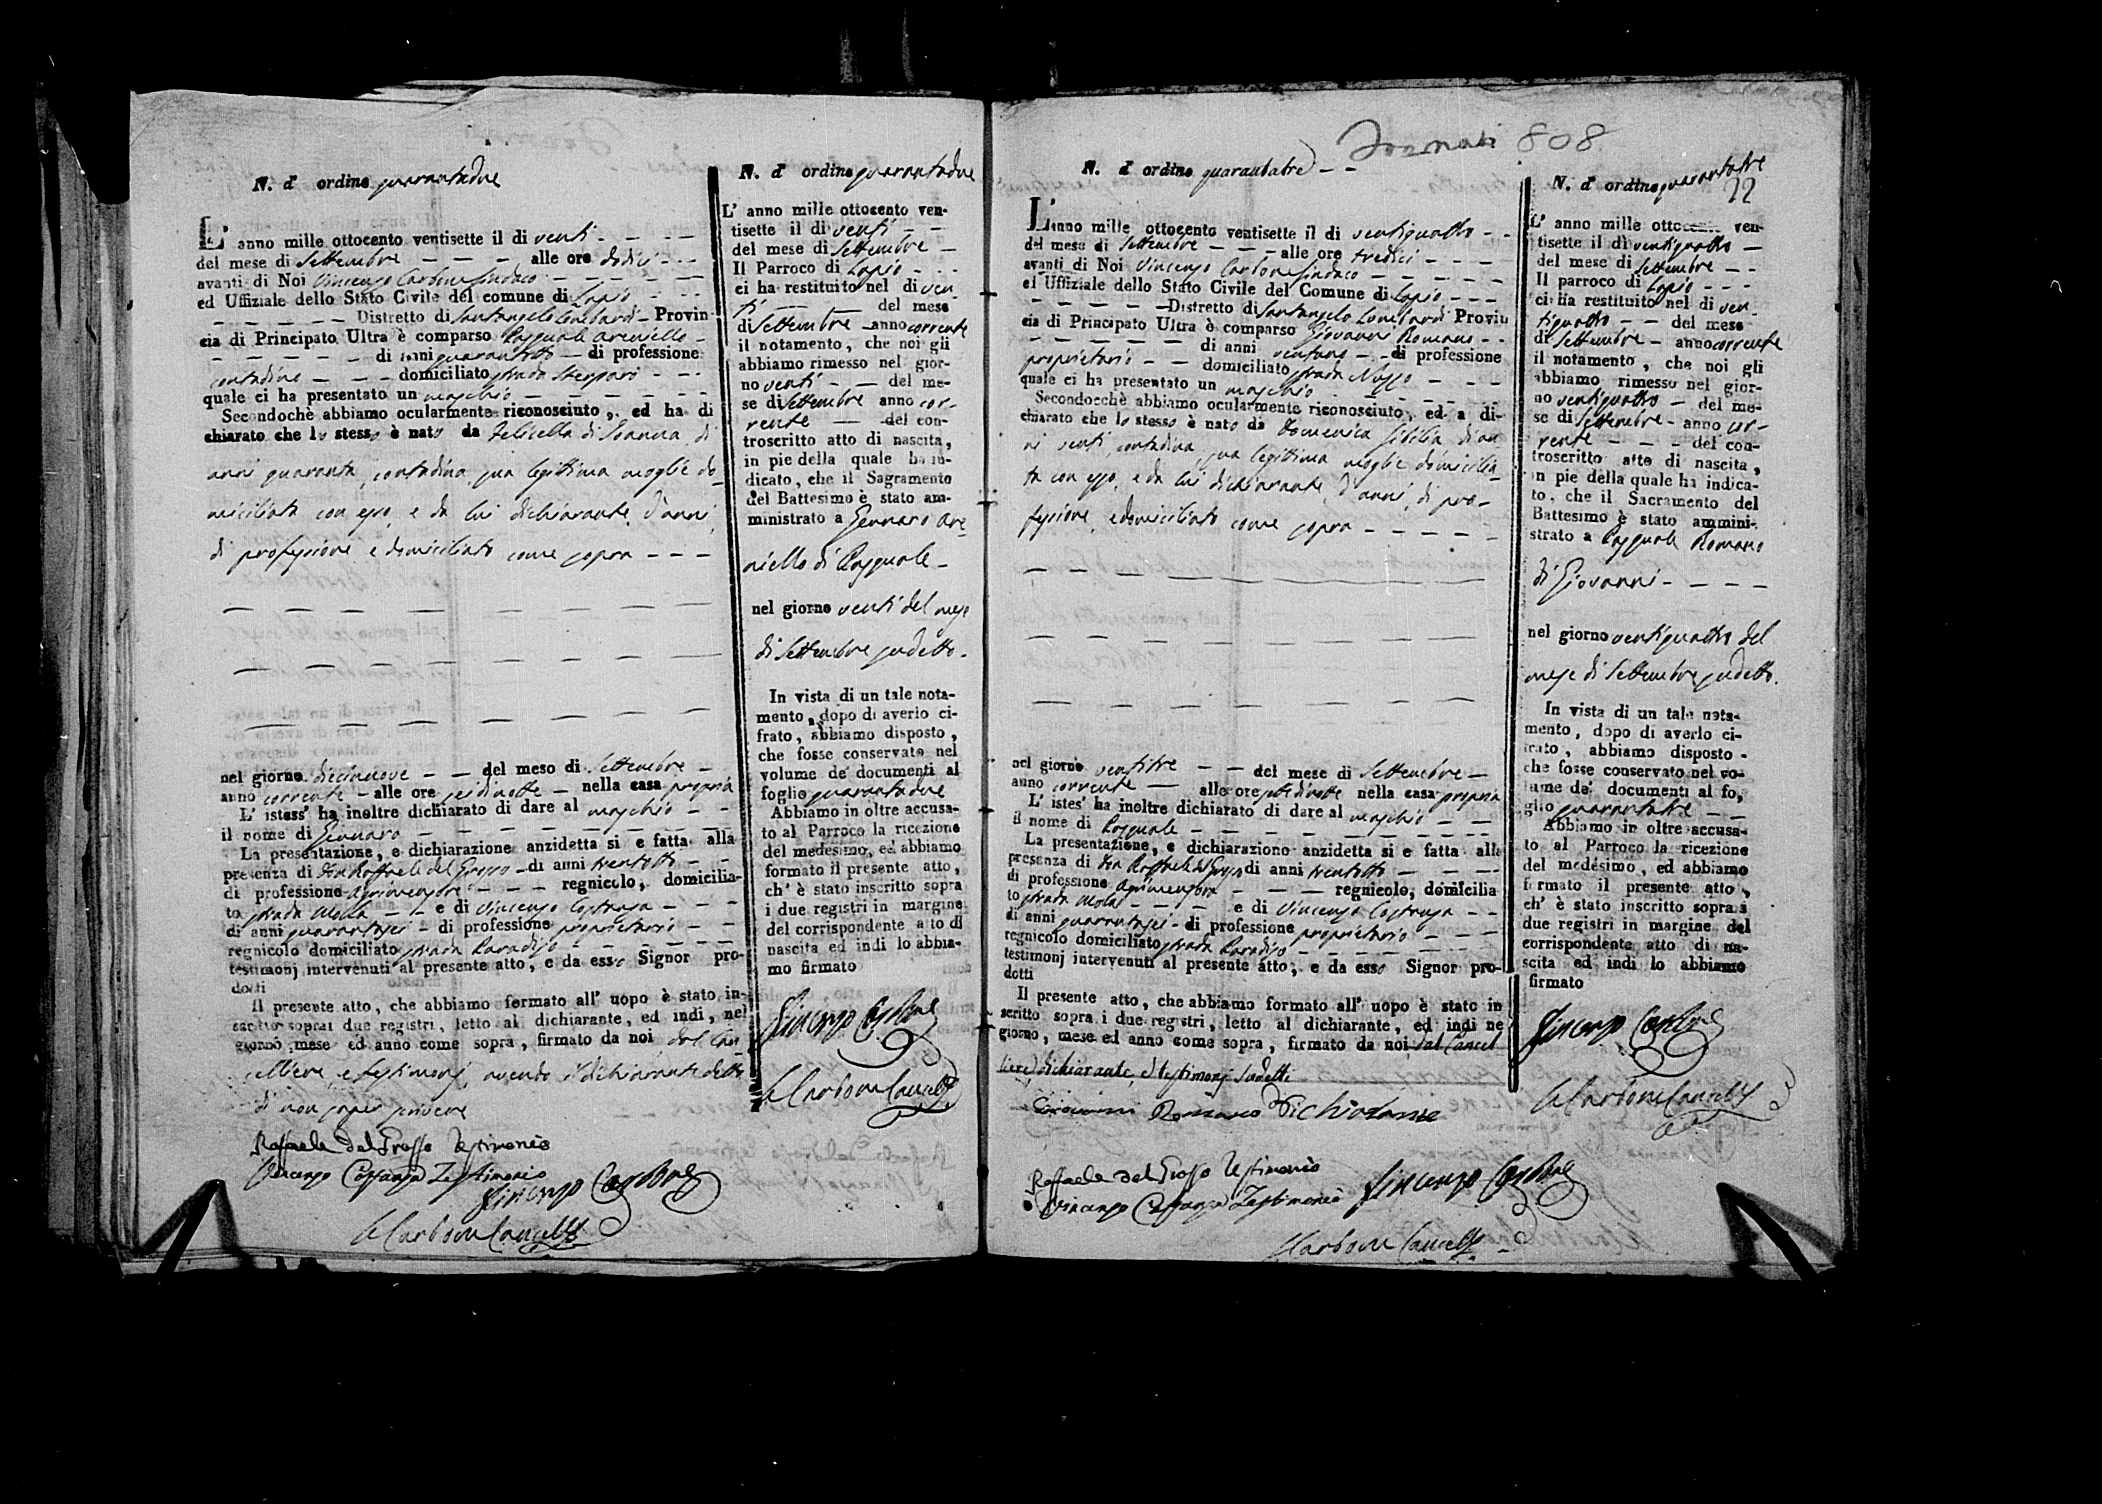 N. d' ordine quarantadue
L' anno mille ottocento ventisette il di venti
del mese di Settembre alle ore dodici
avanti di Noi Vincenzo Carbone Sindaco
ed Uffiziale dello Stato Civile del comune di Lapio
Distretto di Santangelo Lombardi Provin
cia di Principato Ultra è comparso Pasquale Areniello
di anni quarantotto di professione
contadino domiciliato strada
quale ci ha presentato un maschio
Secondochè abbiamo ocularmente riconosciuto, ed ha di
chiarato che lo stesso è nato da di
anni quaranta, contadina sua legittima moglie do-
miciliata con esso, e da lui dichiarante, d'anni,
di professione e domiciliato come sopra
nel giorno diecinnove del mese di Settembre
anno corrente alle ore sei di notte nella casa propria
L' istess' ha inoltre dichiarato di dare al maschio
il nome di Gennaro
La presentazione, e dichiarazione anzidetta si e fatta alla
presenza di Don Raffaele del Grosso di anni trentotto
di professione Agrimensore regnicolo, domicilia-
to strada Molla e di Vincenzo Costanza
di anni quarantasei di professione proprietario
regnicolo domiciliato strada Paradiso
testimonj intervenuti al presente atto, e da esso Signor pro-
dotti
Il presente atto, che abbiamo formato all' uopo è stato in-
scritto sopra i due registri, letto al dichiarante, ed indi, nel
giorno, mese ed anno come sopra, firmato da noi dal Can
celliere, e testimonj, avendo il dichiarante detto
di non saper scrivere
Raffaele del Grosso Testimonio
Vincenzo Costanza Testimonio
Vincenzo Carbone
Carbone Cancelle
N. d' ordine quarantadue
L' anno mille ottocento ven-
tisette il di venti
del mese di Settembre
Il Parroco di Lapio
ci ha restituito nel di ven
ti del mese
di Settembre anno corrente
il notamento, che noi gli
abbiamo rimesso nel gior-
no venti del me-
se di Settembre anno cor-
rente del con-
troscritto atto di nascita,
in pie della quale ha in-
dicato, che il Sagramento
del Battesimo è stato am-
ministrato a Gennaro Are
niello di Pasquale
nel giorno venti del mese
di Settembre sudetto
In vista di un tale nota-
mento, dopo di averlo ci-
frato, abbiamo disposto,
che fosse conservato nel
volume de' documenti al
foglio quarantadue
Abbiamo in oltre accusa-
to al Parroco la ricezione
del medesimo, ed abbiamo
formato il presente atto,
ch' è stato inscritto sopra
i due registri in margine
del corrispondente atto di
nascita ed indi lo abbia-
mo firmato
Vincenzo Carbone
Carbone Cancelle
808
N. d' ordine quarantatre
L' anno mille ottocento ventisette il di ventiquattro
del mese di Settembre alle ore tredici
avanti di Noi Vincenzo Carbone Sindaco
ed Uffiziale dello Stato Civile del Comune di Lapio
Distretto di Santangelo Lombardi Provin
cia di Principato Ultra è comparso Giovanni Romano
di anni ventuno di professione
proprietario domiciliato strada Nuzzo
quale ci ha presentato un maschio
Secondocchè abbiamo ocularmente riconosciuto, ed a di-
chiarato che lo stesso è nato da Domenica Sibilia di an
ni venti, contadina sua legittima moglie domicilia-
ta con esso, e da lui dichiarante, d'anni, di pro-
fessione, e domiciliato come sopra
nel giorno ventitre del mese di Settembre
anno corrente alle ore sette di notte nella casa propria
L' istes' ha inoltre dichiarato di dare al maschio
il nome di Pasquale
La presentazione, e dichiarazione anzidetta si e fatta alla
presenza di Don Raffaele del Grosso di anni trentotto
di professione Agrimensore regnicolo, domicilia
to strada Mola e di Vincenzo Costanza
di anni quarantasei di professione proprietario
regnicolo domiciliato strada Paradiso
testimonj intervenuti al presente atto, e da esso Signor pro-
dotti
Il presente atto, che abbiamo formato all' uopo è stato in
scritto sopra i due registri, letto al dichiarante, ed indi ne
giorno, mese ed anno come sopra, firmato da noi dal Cancel
liere, dichiarante, e testimonj sudetti
Giovanni Romano Dichiarante
Raffaele del Grosso Testimonio
Vincenzo Costanza Testimonio Vincenzo Carbone
Carbone Cancelle
N. d' ordine quarantatre
22
L' anno mille ottocento ven-
tisette il di ventiquattro
del mese di Settembre
Il parroco di Lapio
ci ha restituito nel di ven
tiquattro del mese
di Settembre anno corrente
il notamento, che noi gli
abbiamo rimesso nel gior-
no ventiquattro del me-
se di Settembre anno cor-
rente del con-
troscritto atto di nascita,
in pie della quale ha indica-
to, che il Sacramento del
Battesimo è stato ammini-
strato a Pasquale Romano
di Giovanni
nel giorno ventiquattro del
mese di Settembre sudetto.
In vista di un tale nota-
mento, dopo di averlo ci-
frato, abbiamo disposto
che fosse conservato nel vo-
lume de' documenti al fo,
glio quarantatre
Abbiamo in oltre accusa-
to al Parroco la ricezione
del medesimo, ed abbiamo
formato il presente atto,
ch' è stato inscritto sopra i
due registri in margine del
corrispondente atto di na-
scita ed indi lo abbiamo
firmato
Vincenzo Carbone
Carbone Cancelle